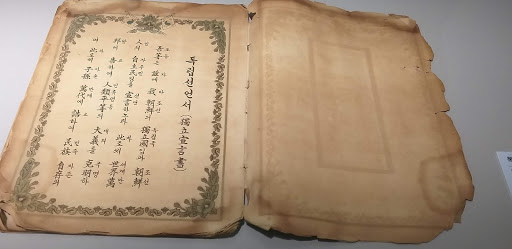 독립선언서(獨立宣言書)
吾等은 玆에 我 朝鮮의 獨立國임과 朝鮮
人의 自主民임을 宣言하노라 此로써 世界萬
邦에 告하야 人類平等의 大義를 克明하
며 此로써 子孫萬代에 誥하야 民族自存의